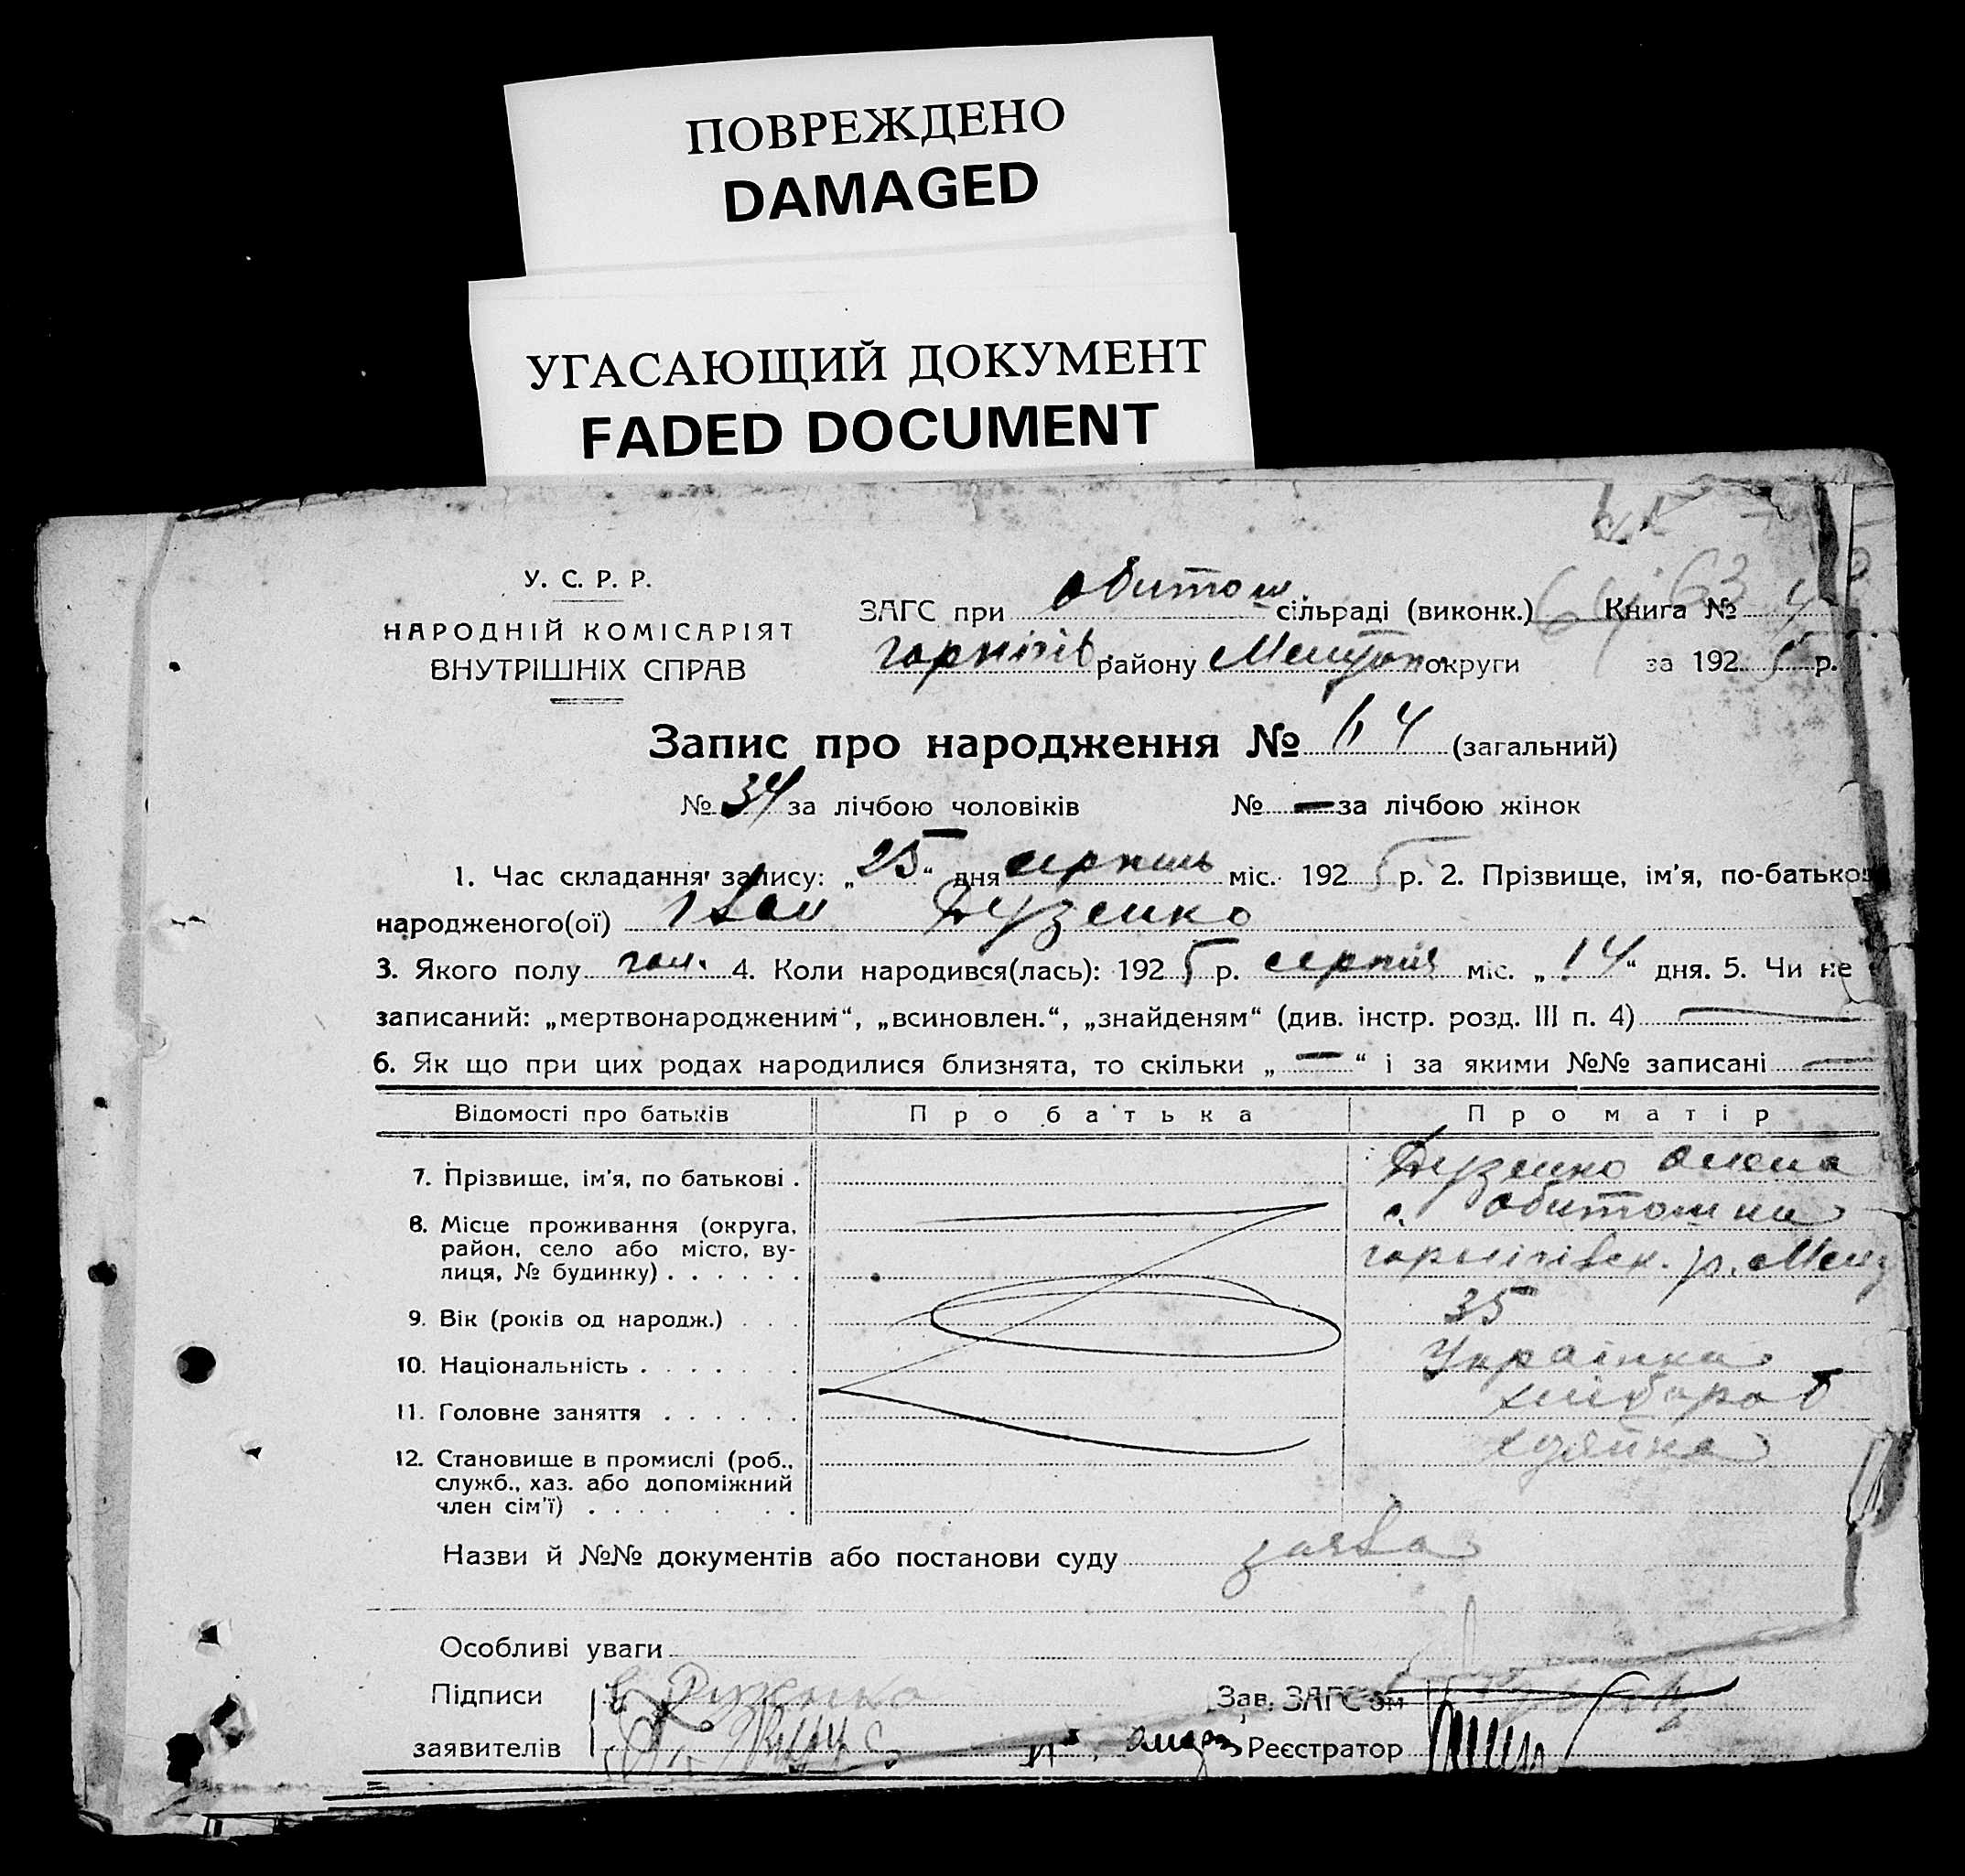 ПОВРЕЖДЕНО
DAMAGED
УГАСАЮЩИЙ ДОКУМЕНТ
FADED DOCUMENT
У. С. Р. Р.
НАРОДНІЙ КОМІСАРІЯТ
ВНУТРІШНІХ СПРАВ
ЗАГС при Обитош сільраді (виконк.) 64 63 Книга № 4
горнічів. району округи за 1925 р.
Запис про народження № 64 (загальний)
№ 34 за лічбою чоловіків № — за лічбою жінок
1. Час складання запису: „25“ дня серпень міс. 1925 р. 2. Прізвище, ім'я, по-батькові
народженого(ої) Іван Дузенко
3. Якого полу чол. 4. Коли народився(лась): 1925 р. серпня міс. „14“ дня. 5. Чи не
записаний: „мертвонародженим“, „всиновлен.“, „знайденям“ (див. інстр. розд. III п. 4) —
6. Як що при цих родах народилися близнята, то скільки „—“ і за якими №№ записані —
Відомості про батьків Про батька Про матір
7. Прізвище, ім'я, по батькові . Дузенко Олена
8. Місце проживання (округа, район, село або місто, вулиця, № будинку) . . . . . .
9. Вік (років од народж.) . . . 35
10. Національність . . . . . Українка
11. Головне заняття . . . . . . хлібороб
12. Становище в промислі (роб., служб., хаз. або допоміжний член сім'ї) . . . . . . .
Назви й №№ документів або постанови суду заява
Особливі уваги
Підписи Зав. ЗАГС'ом
заявителів Реєстратор